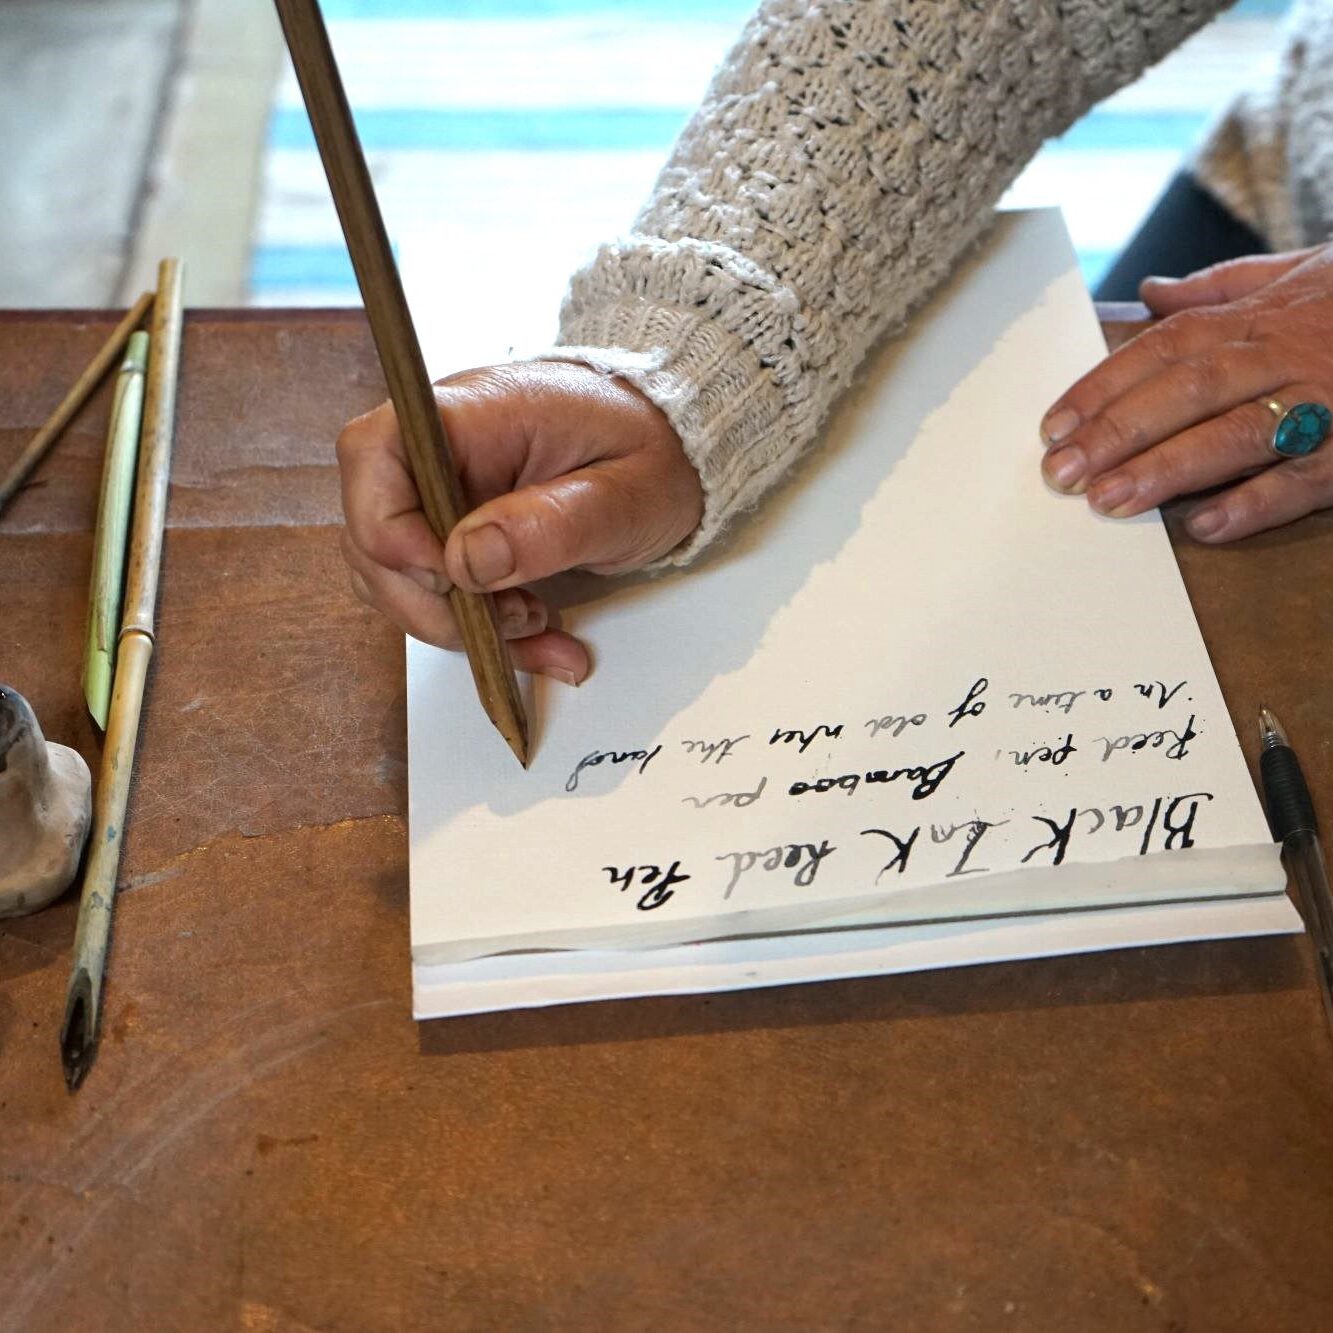 Black Ink Reed Pen
Reed pen, Bamboo pen
In a time of old when the land